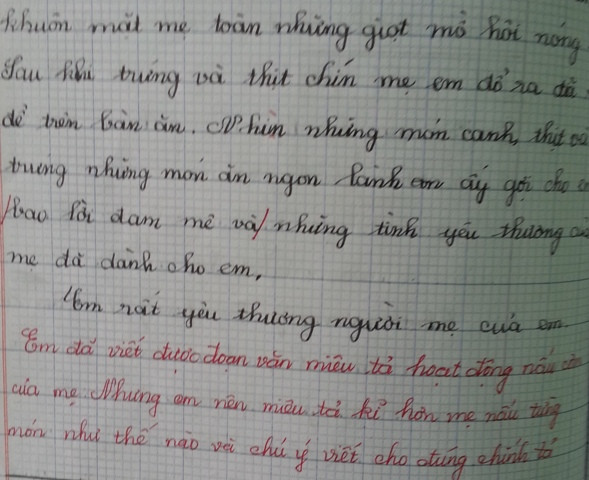 khuôn mặt mẹ toàn những giọt mồ hôi nóng
Sau khi trứng và thịt chín mẹ em đổ ra đĩa
để trên bàn ăn. Nhìn những món canh, thịt và
trứng những món ăn ngon lành em ấy gợi cho e
bao lời dam mê và những tình yêu thương củ
mẹ đã dành cho em,
Em rất yêu thương người mẹ của em
Em đã viết được đoạn văn miêu tả hoạt động nấu ăn
của mẹ. Nhưng em nên miêu tả kĩ hơn mẹ nấu từng
món như thế nào và chú ý viết cho đúng chính tả